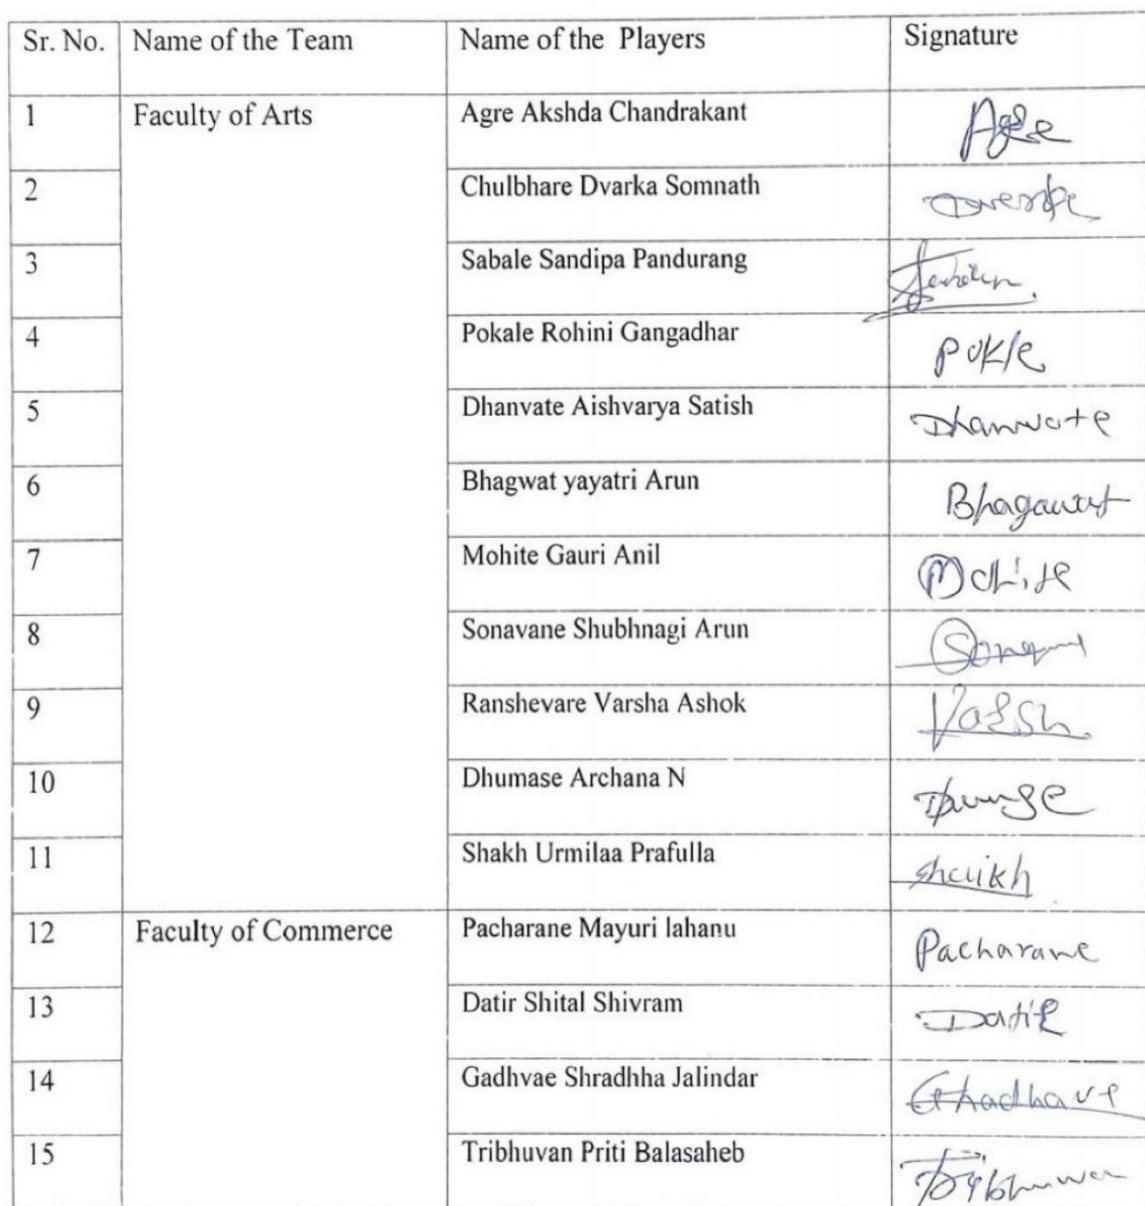 Sr. No. Name of the Team Name of the Players Signature
1 Faculty of Arts Agre Akshda Chandrakant Agre
2 Chulbhare Dvarka Somnath
3 Sabale Sandipa Pandurang
4 Pokale Rohini Gangadhar Pokle
5 Dhanvate Aishvarya Satish Dhanvate
6 Bhagwat yayatri Arun Bhagawat
7 Mohite Gauri Anil Mohite
8 Sonavane Shubhnagi Arun
9 Ranshevare Varsha Ashok Varsh
10 Dhumase Archana N
11 Shakh Urmilaa Prafulla Shaikh
12 Faculty of Commerce Pacharane Mayuri lahanu Pacharane
13 Datir Shital Shivram Datir
14 Gadhvae Shradhha Jalindar Ghadhave
15 Tribhuvan Priti Balasaheb